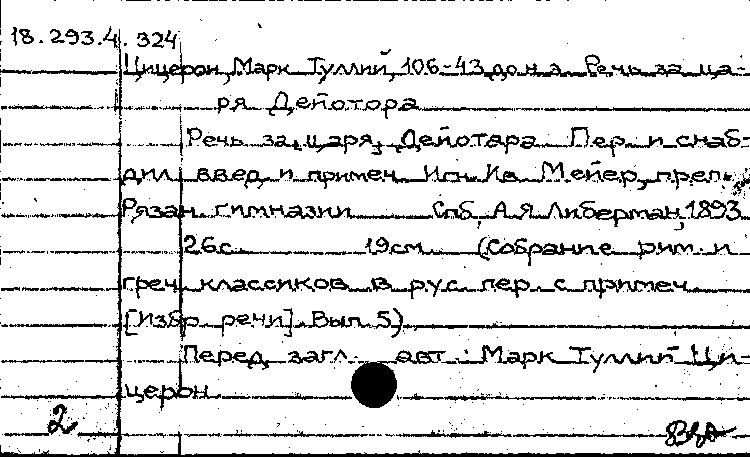 18.293.4.324
Цицерон, Марк Туллий, 106-43 до н.э. Речь за ца-
ря Дейотора
Речь за царя Дейотара Пер. и снаб-
дил введ. и примеч. Игн. Ив. Мейер, преп.
Рязан. гимназии Спб, А.Я. Либерман, 1893
26 с. 19 см (Собрание рим. и
греч. классиков в рус. пер. с примеч.
[Избр. речи]. Вып. 5)
Перед загл. авт.: Марк Туллий Ци-
церон.
2